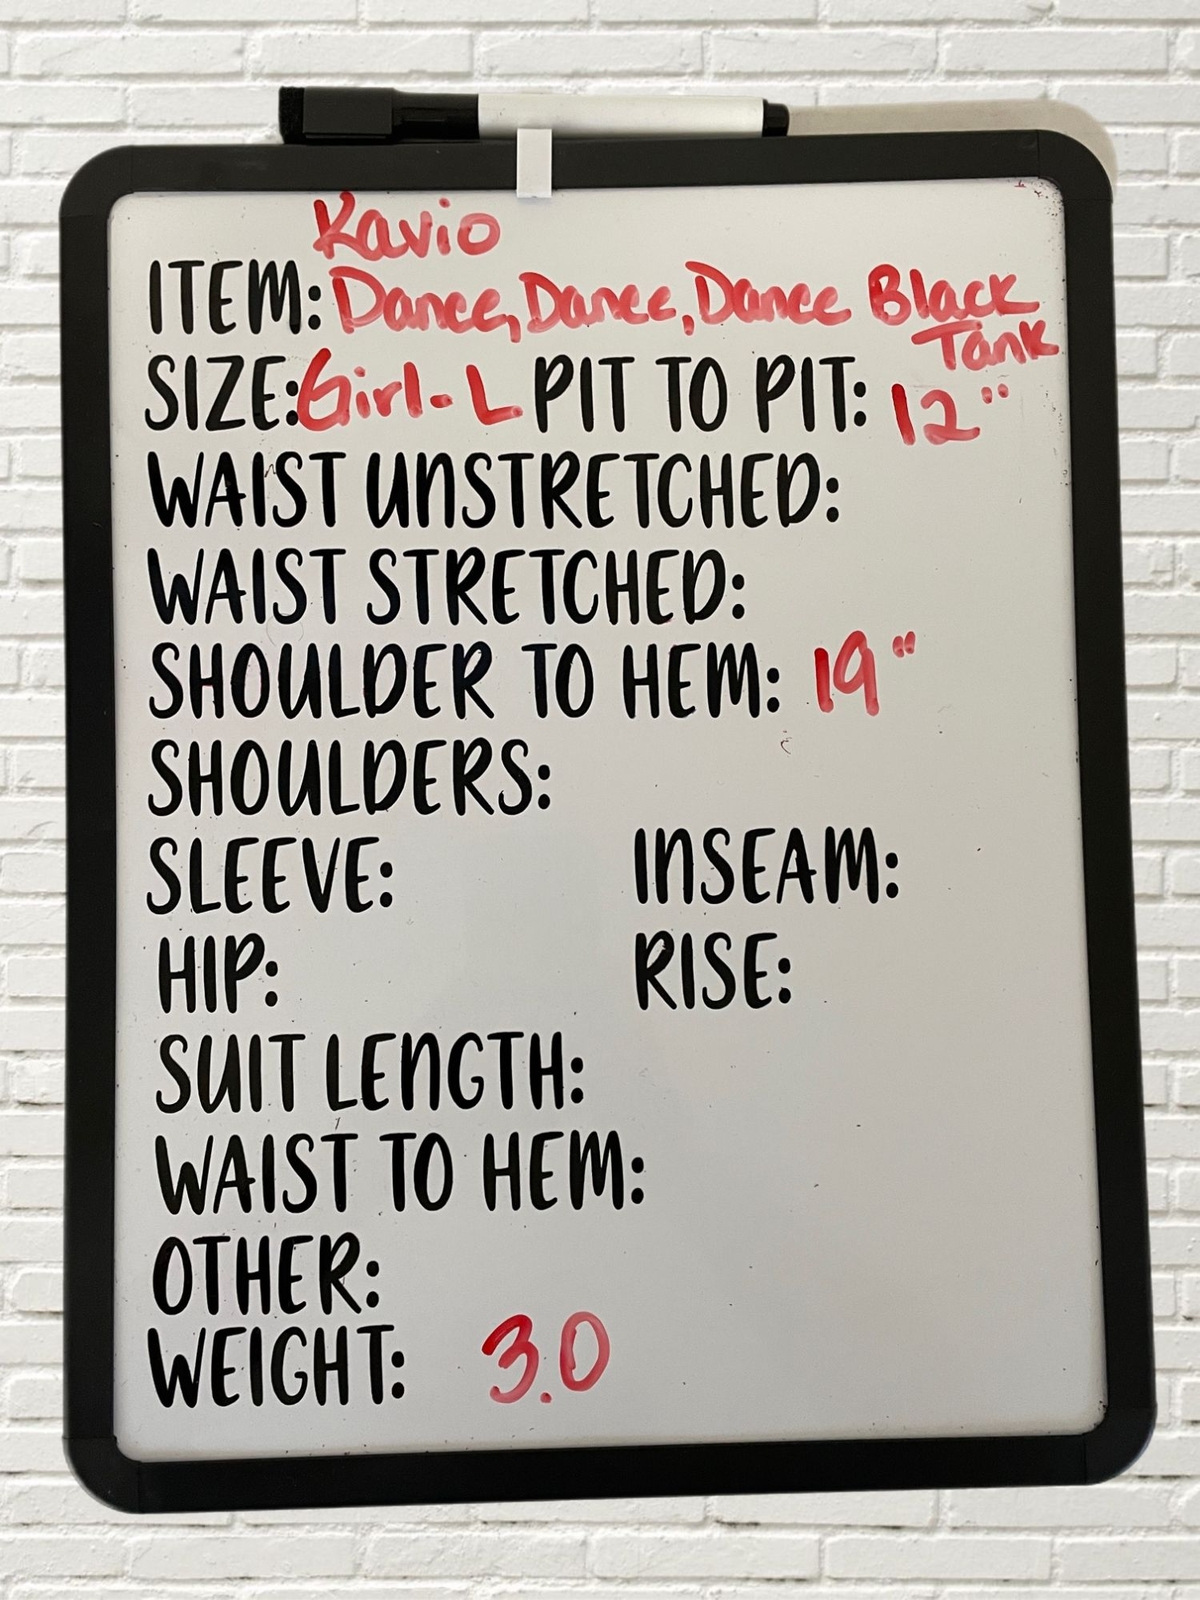 Kavio
ITEM: Dance, Dance, Dance Black
Tank
SIZE: Girl-L PIT TO PIT: 12"
WAIST UNSTRETCHED:
WAIST STRETCHED:
SHOULDER TO HEM: 19"
SHOULDERS:
SLEEVE: INSEAM:
HIP: RISE:
SUIT LENGTH:
WAIST TO HEM:
OTHER:
WEIGHT: 3.0